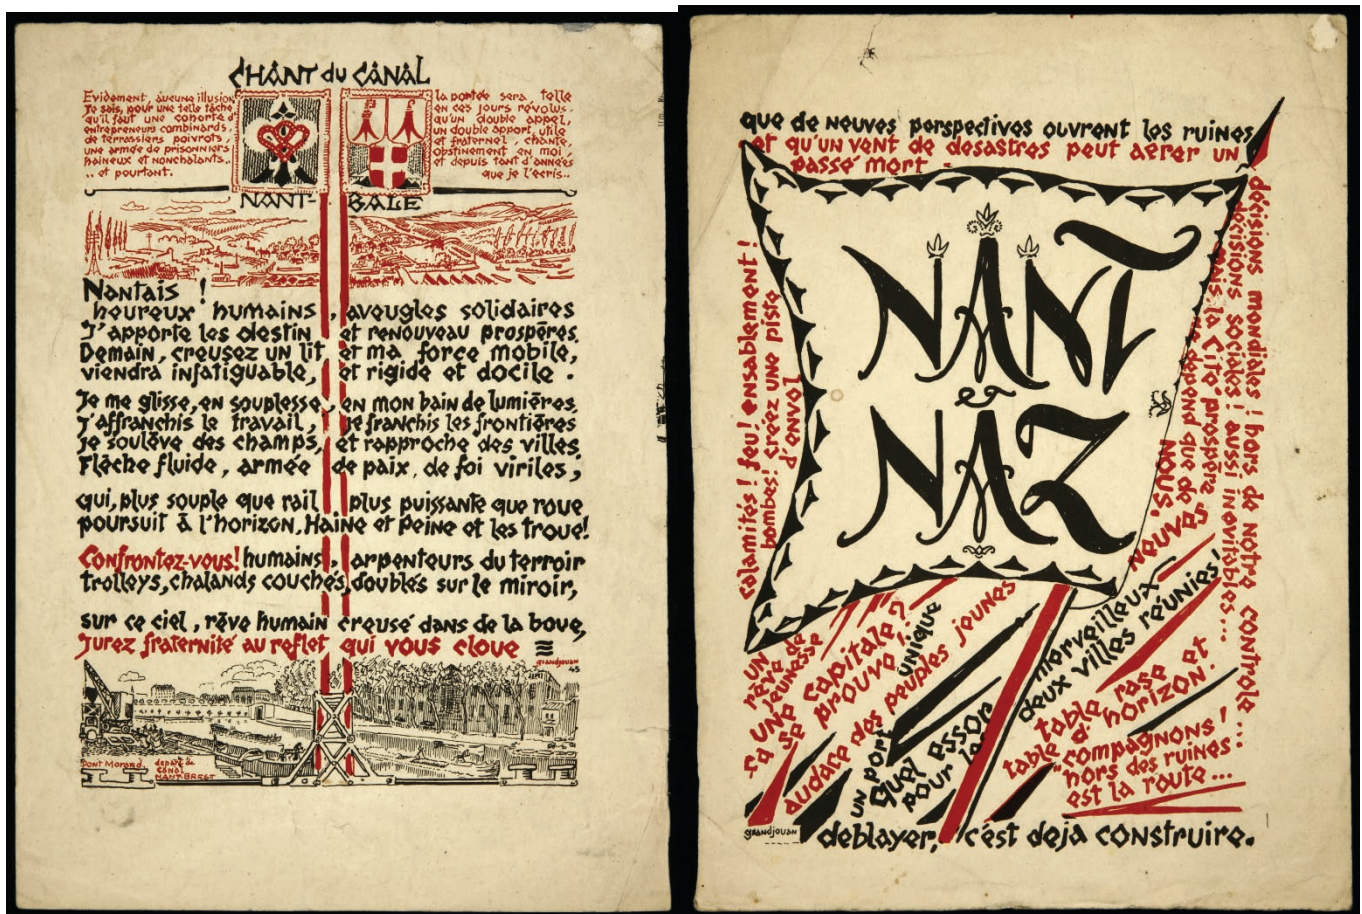 CHANT du CANAL
Evidement, aucune illusion
Je sais, pour une telle tâche
qu'il faut une cohorte d'
entrepreneurs combinards
de terrassiers poivrots,
une armée de prisonniers
haineux et nonchalants..
.. et pourtant.
la portée sera, telle
en ces jours révolus,
qu'un double appel,
un double apport, utile
et fraternel, chante,
obstinement en moi,
et depuis tant d'années
que je l'ecris..
NANT-BALE
Nantais !
heureux humains, aveugles solidaires
J'apporte les destin et renouveau prospères.
Demain, creusez un lit et ma force mobile,
viendra infatiguable, et rigide et docile.
Je me glisse, en souplesse, en mon bain de lumières,
j'affranchis le travail, je franchis les frontières
je soulève des champs, et rapproche des villes
Flèche fluide, armée de paix, de foi viriles,
qui, plus souple que rail, plus puissante que roue
poursuit à l'horizon, Haine et Peine et les troue!
Confrontez-vous! humains, arpenteurs du terroir
trolleys, chalands couchés, doublés sur le miroir,
sur ce ciel, rêve humain creusé dans de la boue,
Jurez fraternité au reflet qui vous cloue
grandjouan
45
Pont Morand. départ du
canal
NANT-BREST
que de neuves perspectives ouvrent les ruines
et qu'un vent de desastres peut aerer un
passé mort
décisions mondiales ! hors de notre controle...
decisions sociales ! aussi inevitables...
mais la Cité prospère
ne depend que de
nous.
calamités ! feu ! ensablement !
bombes! créez une piste
NANT
et
NAZ
neuve savons
un
rêve de
jeunesse
ra une capitale ?
se prouvo
audace des peuples jeunes
unique
un port
quel essor
pour le
merveilleux
deux villes réunies!
table rase et
table d'horizon.
"compagnons !
hors des ruines..
est la route...
grandjouan
deblayer, c'est deja construire.